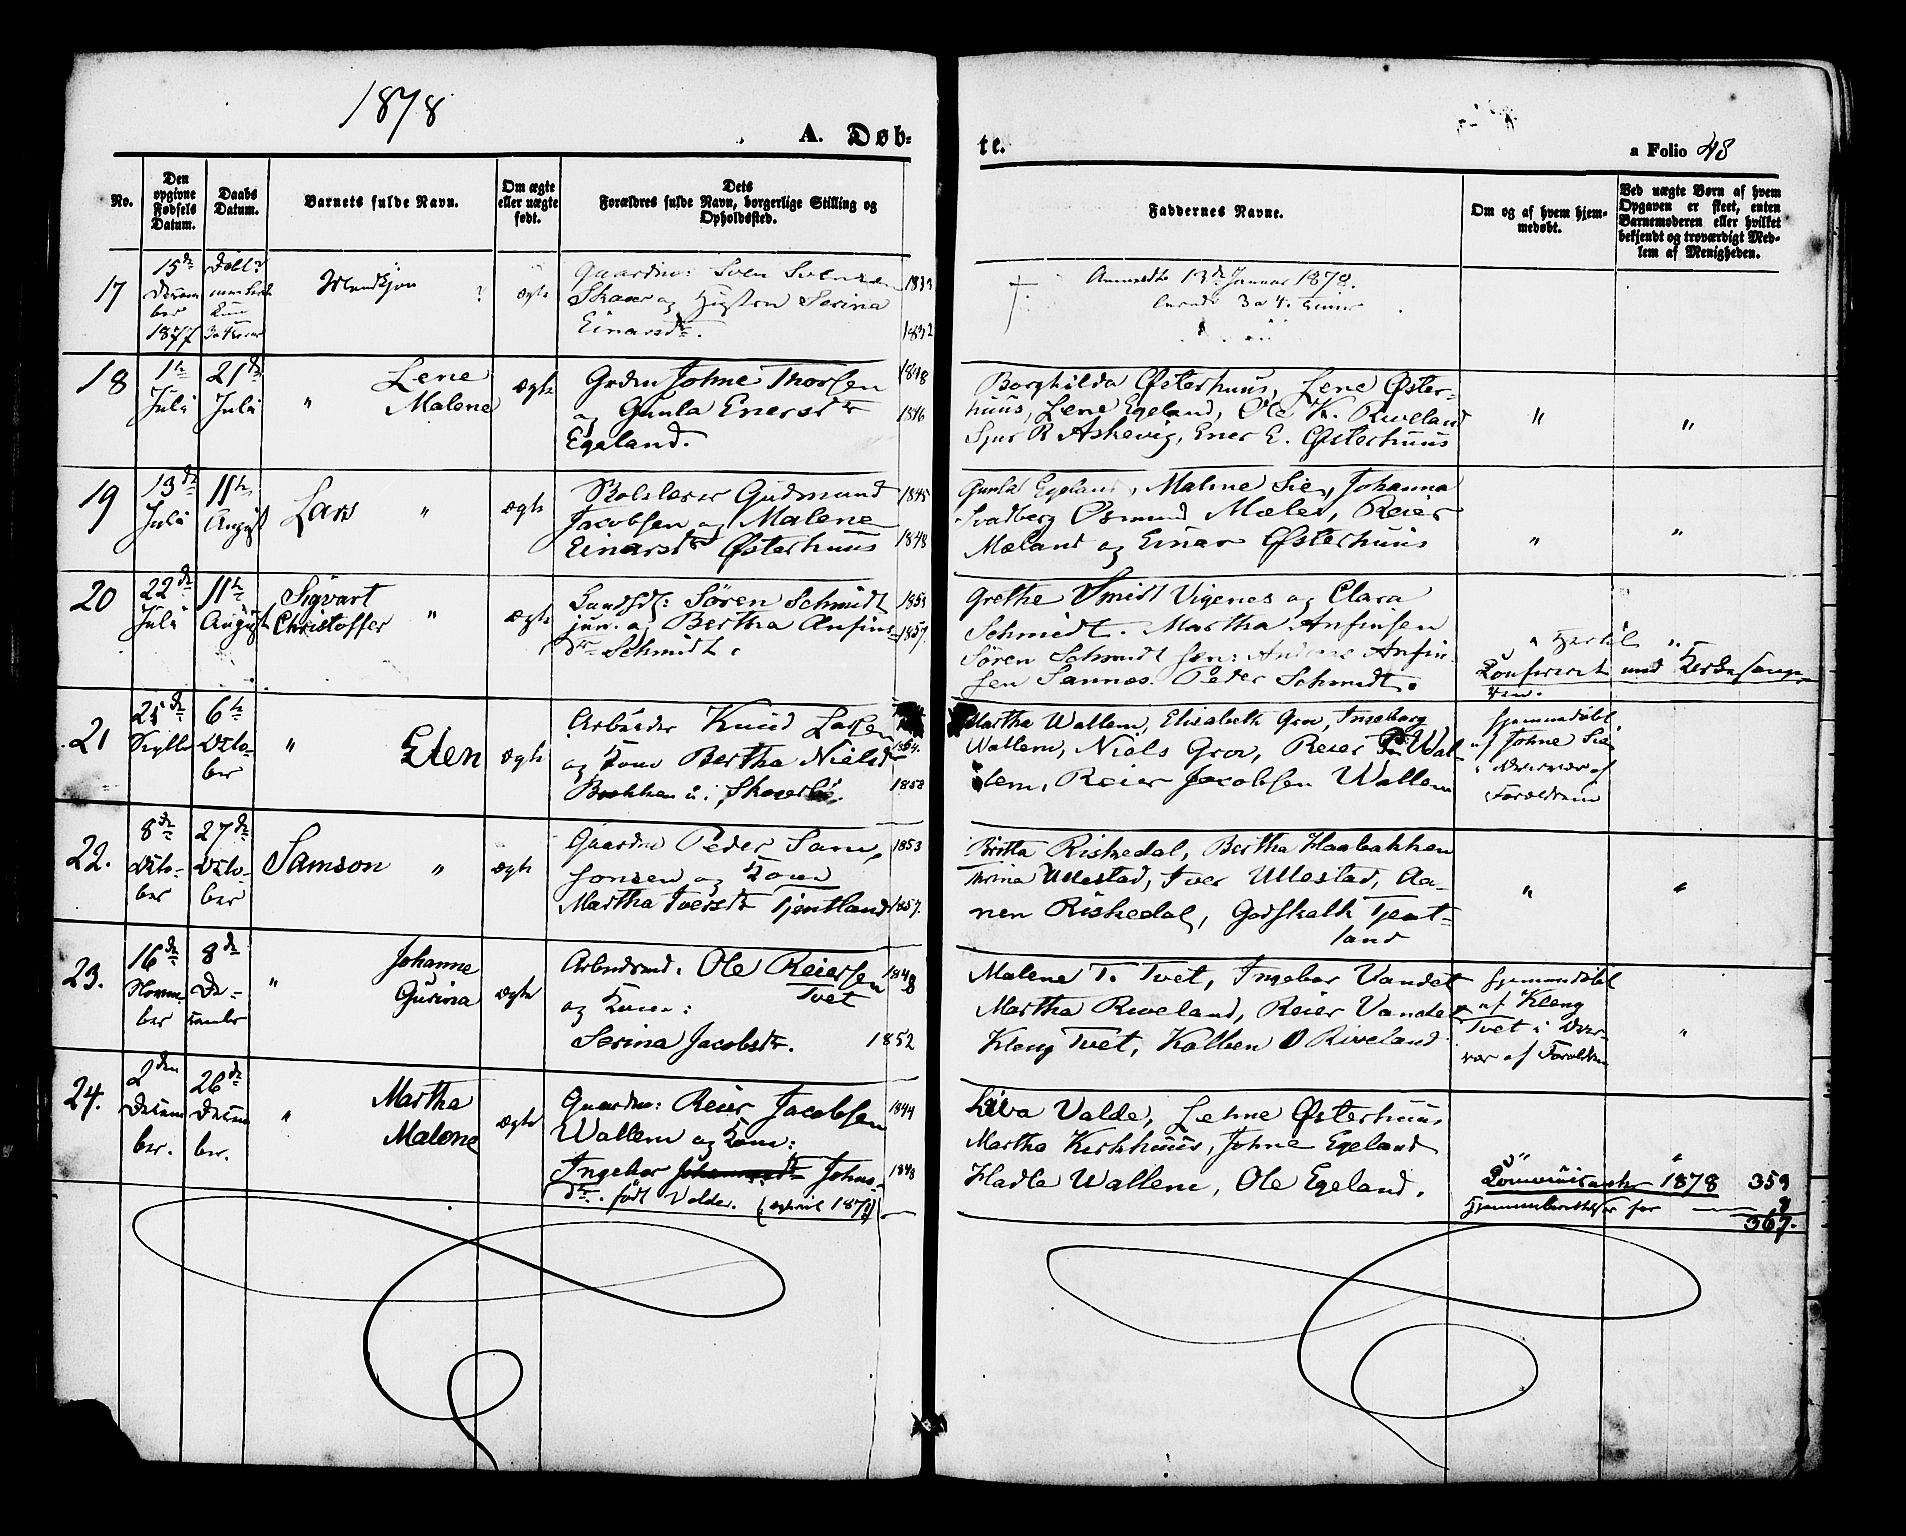 1878
A. Døb-
te.
a Folio 48
No.
Den opgivne Fødsels Datum.
Daabs Datum.
Barnets fulde Navn.
Om ægte eller uægte født.
Dets Forældres fulde Navn, borgerlige Stilling og Opholdssted.
Faddernes Navne.
Om og af hvem hjem-
medøbt.
Ved uægte Børn af hvem
Opgaven er skeet, enten
Barnemoderen eller hvilket
bekjendt og troværdigt Med-
lem af Menigheden.
17
15de
Decem
ber
1877
ægte
Gaardm: Sven Svensen
Skaar og
Serina
Einarsdtr.
1832
Anmeldte 13de Januar 1878.
3 a 4
18
1te
Juli
21de
Juli
"
Lene
Malene
ægte
Grdm Johne Thorsen
og Gunla Enersdtr
Egeland.
1848
1846
Borghilda Østerhuus, Lene Øster-
huus, Lene Egeland, Ole K. Riveland
Sjur R Askevig, Ener E. Østerhuus
"
"
19
13de
Juli
11te
August
Lars
"
ægte
Gudmund
Jacobsen og Malene
Einarsdtr Østerhuus
1845
1848
Gunla Egeland, Malene Sie, Johanna
Svadberg Osmund Mæler, Reier
Mæland og Einar Østerhuus
"
"
20
22de
Juli
11te
August
Sigvart
Christoffer
"
ægte
Søren Schmidt
jun. og Bertha Anfins-
dtr Schmidt.
1857
Grethe Smidt Vigenes og Clara
Schmidt. Martha Anfinsen
Søren Schmidt sen: Anfin-
sen Sannes. Peder Schmidt.
" Hertil "
Konfereret med Kirkesange
ren.
21
25de
6te
Octo-
ber
"
Elen
ægte
Arbeider Knud Larsen
og Kone Bertha Nielsdtr
Brekken u. Skaarlid.
1858
Martha Wallem, Elisabeth Grov, Ingeborg
Wallem, Niels Grov, Reier Wal-
lem, Reier Jacobsen Wallem
hjemmedøbt
af Johne Sie
i Overvær af
Forældrene
22.
8de
Octo-
ber
27de
Octo-
ber
Samson
"
ægte
Gaardm Peder Sam-
sonsen og Kone
Martha Iversdtr Tjentland
1853
1857.
Britta Riskedal, Bertha Haabakken
Thrina Ullestad, Iver Ullestad, Aa-
nen Riskedal, Godskalk Tjent-
land
"
"
23.
16de
Novem
ber
8de
De-
cember
"
Johanne
Gurina
ægte
Arbeidsmd. Ole Reiersen
Tvet
og Kone:
Serina Jacobsdtr.
1848
1852
Malene T. Tvet, Ingebor Vandet
Martha Riveland, Reier Vandet
Kleng Tvet, Kolben O Riveland
hjemmedøbt
af Kleng
Tvet i Over
vær af Forældrene
"
24.
2den
Decem
ber.
26de
Decem
ber.
"
Martha
Malene
ægte
Gaardm: Reier Jacobsen
Wallem og Kone:
Ingebor Johannesdtr Johns-
dtr. født Valde. (
1844
1848
Liva Valde, Lehne Østerhuus
Martha Kirkhuus, Johne Egeland
Hadle Wallem, Ole Egeland.
"
"
1878 359
for 8
367.